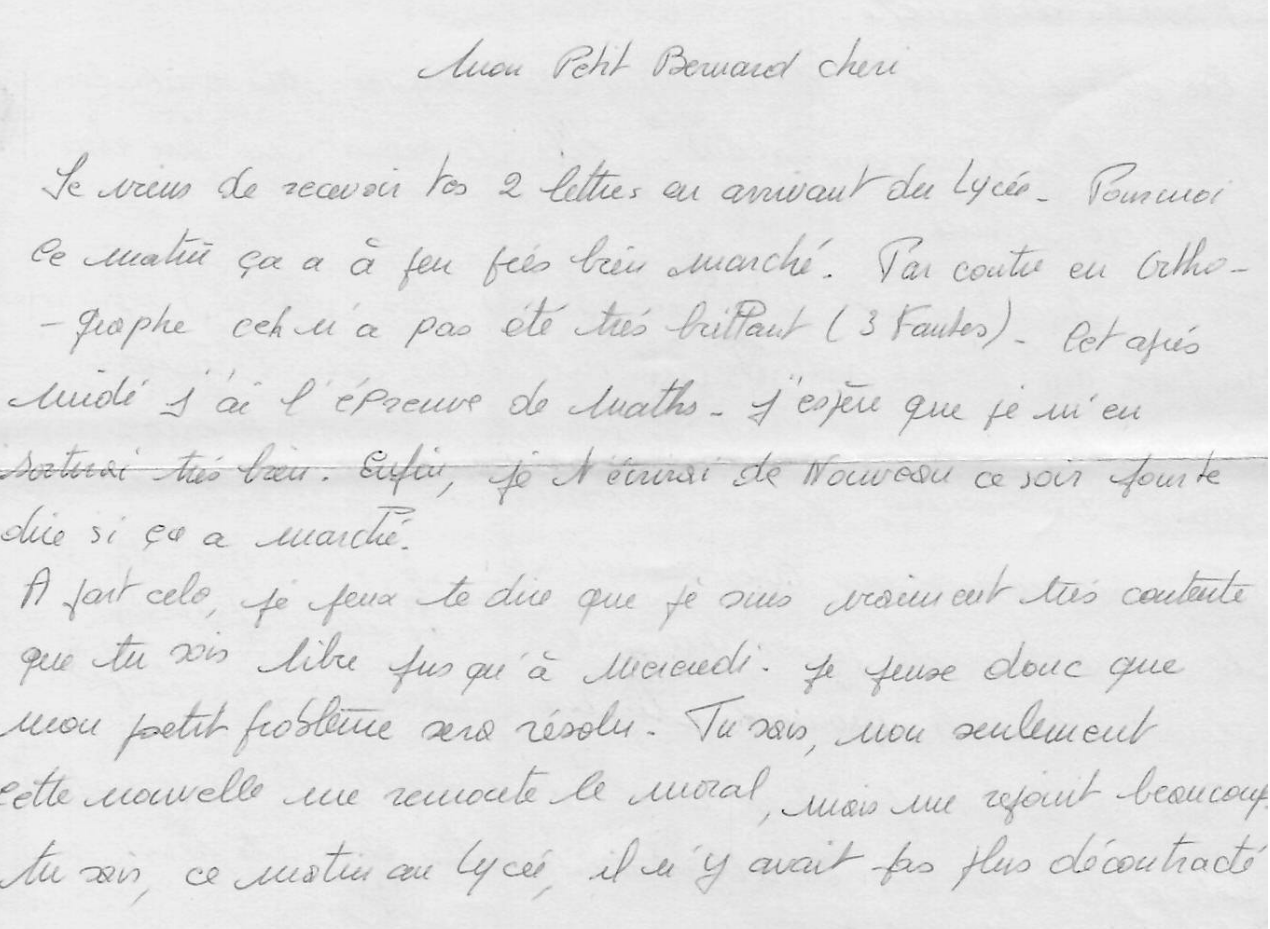 Mon Petit Bernard cheri
Je viens de recevoir tes 2 lettres en arrivant du Lycée. Pour moi
ce matin ça a à peu près bien marché. Par contre en Ortho-
-graphe cela n'a pas été très brillant (3 Fautes). Cet après
midi j'ai l'épreuve de Maths. J'espère que je m'en
sortirai très bien. Enfin, je t'écrirai de Nouveau ce soir pour te
dire si ça a marché.
A part cela, je peux te dire que je suis vraiment très contente
que tu sois libre jusqu'à Mercredi. Je pense donc que
mon petit problème sera résolu. Tu sais, non seulement
cette nouvelle me remonte le moral, mais me réjouit beaucoup,
tu sais, ce matin au Lycée, il n'y avait pas plus décontracté